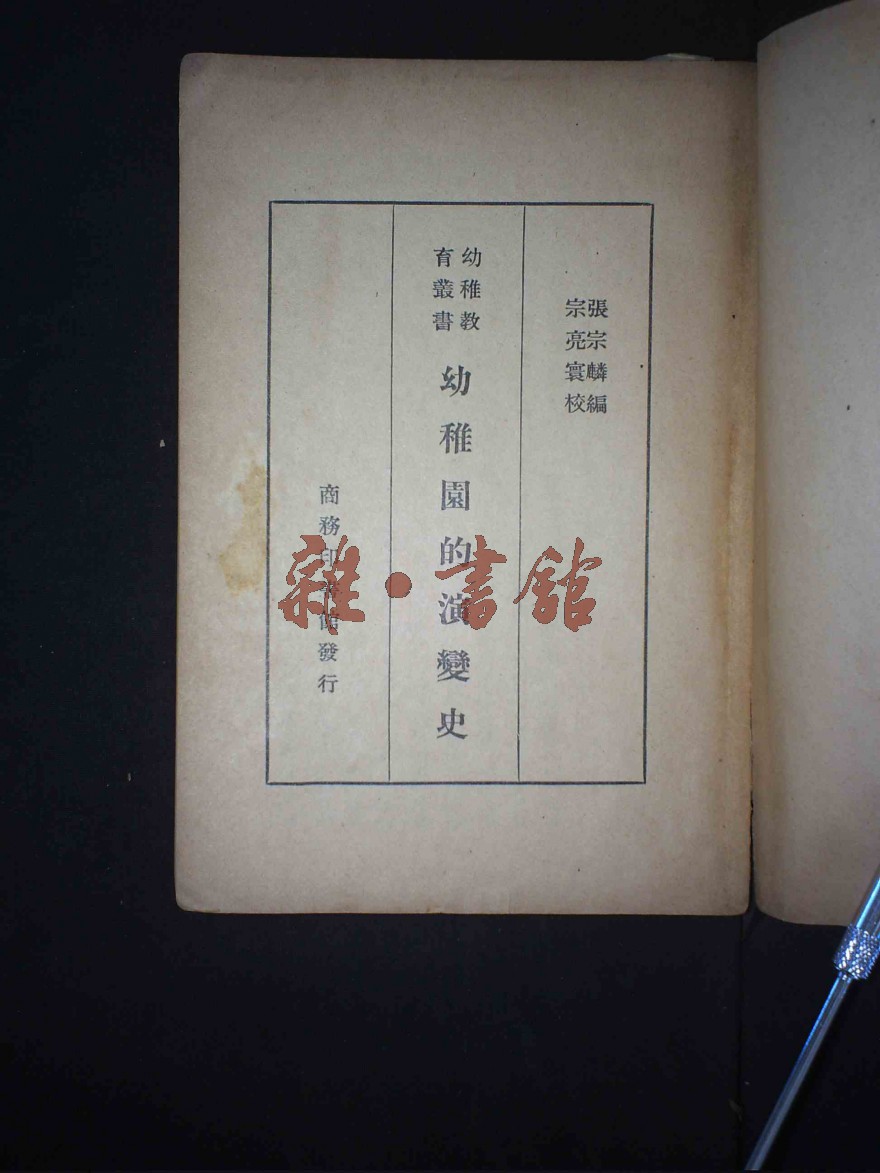 張宗麟編
宗亮寰校
幼稚教
育叢書
幼稚園的演變史
商務印書館發行
雜·書館